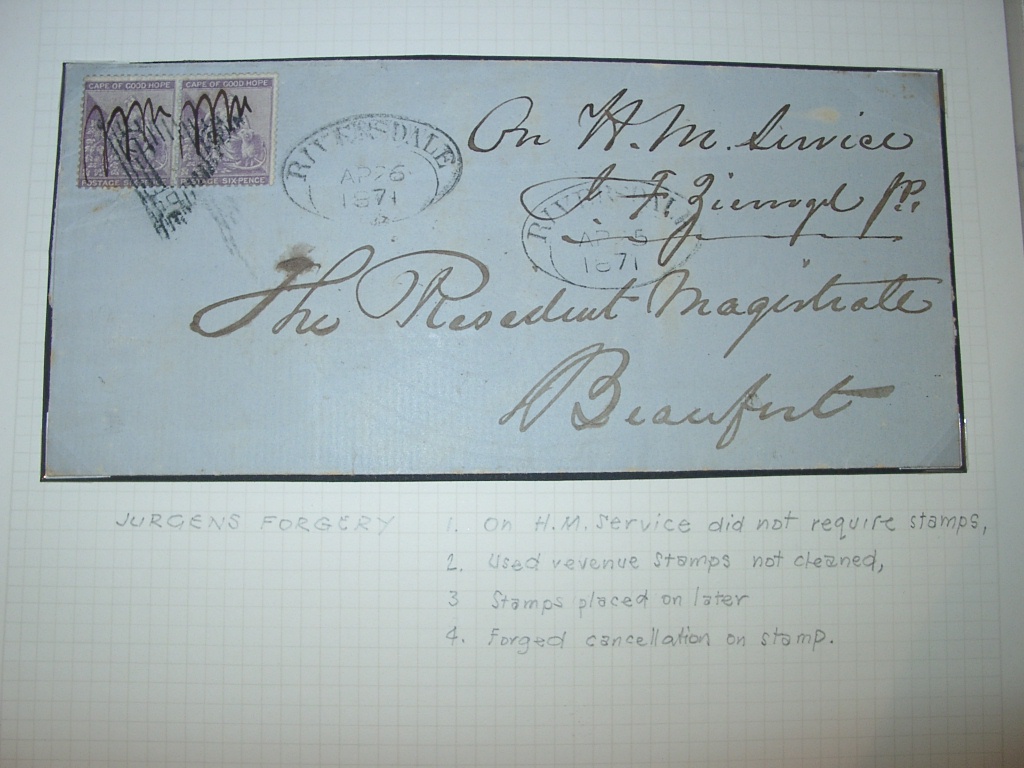 CAPE OF GOOD HOPE CAPE OF GOOD HOPE
POSTAGE SIX PENCE
RIVERSDALE
AP 26
1871
On H. M. Service
RIVERSDALE
AP 5
1871
The Resedent Magistrate
Beaufort
JURGENS FORGERY 1. On H.M. Service did not require stamps,
2. Used revenue stamps not cleaned,
3 Stamps placed on later
4. Forged cancellation on stamp.